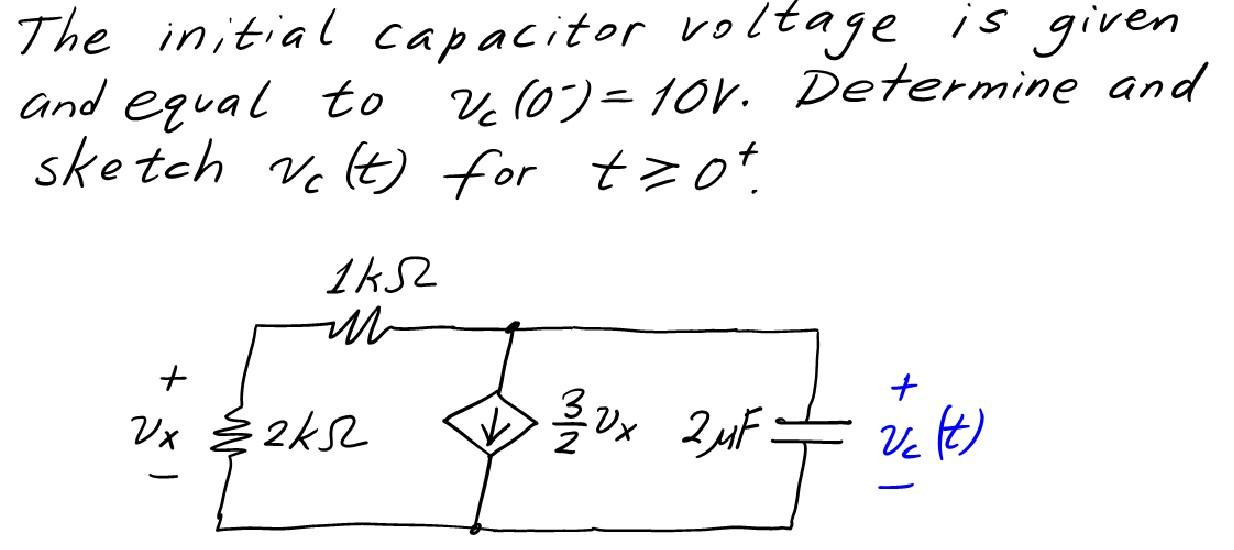 The initial capacitor voltage is given
and equal to v_c(0⁻) = 10V. Determine and
sketch v_c(t) for t ≥ 0⁺.
1kΩ
+
v_x
−
2kΩ
3/2 v_x
2μF
+
v_c(t)
−